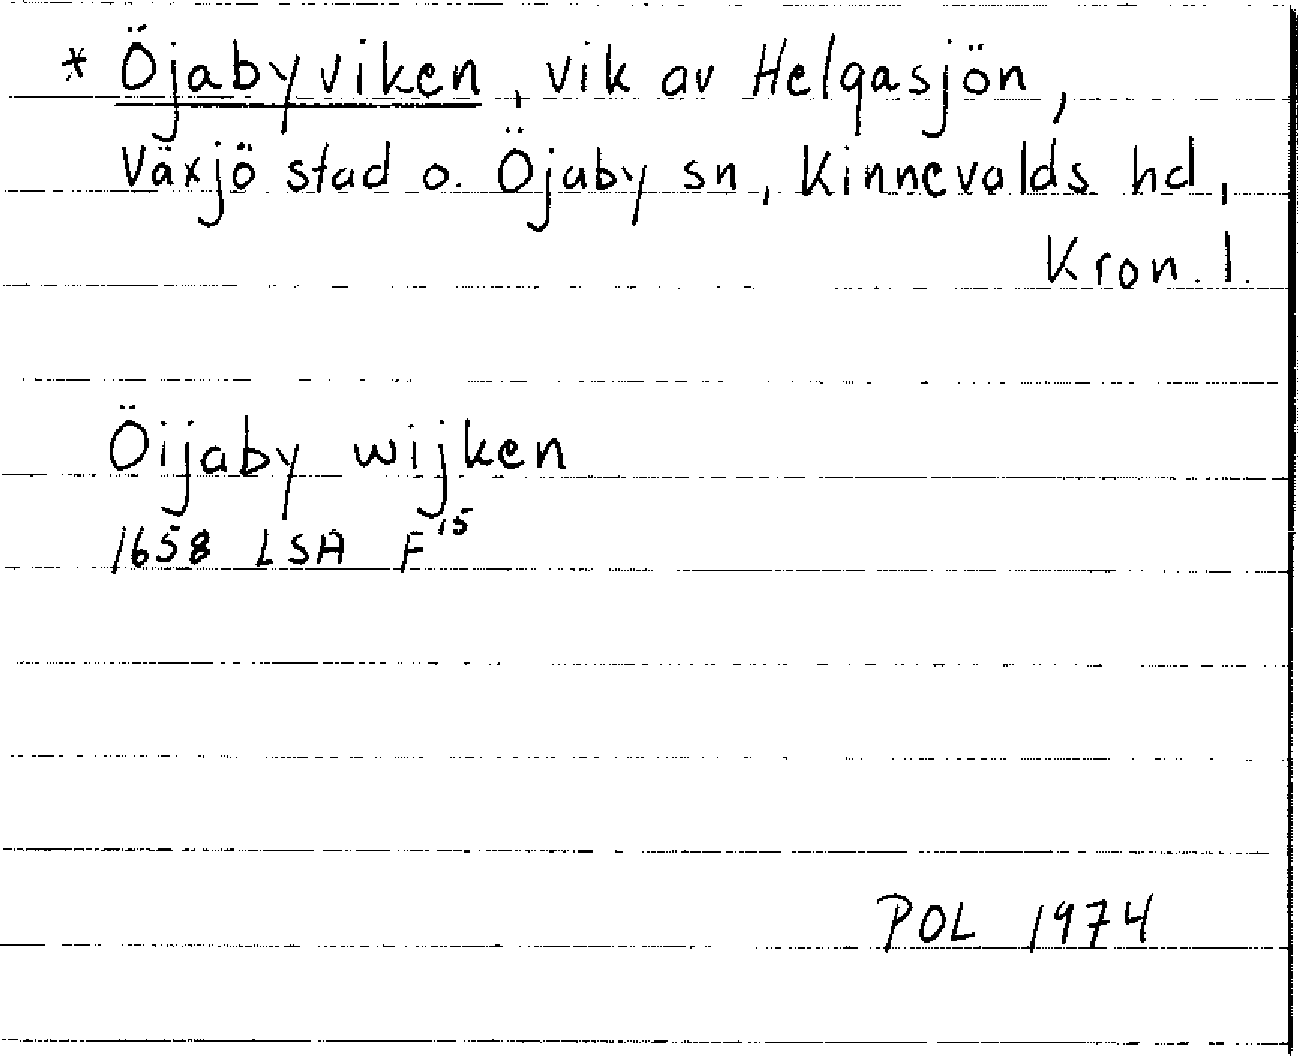 * Öjabyviken, vik av Helgasjön,
Växjö stad o. Öjaby sn, Kinnevalds hd,
Kron. l.
Öijaby wijken
1658 LSA F 15
POL 1974